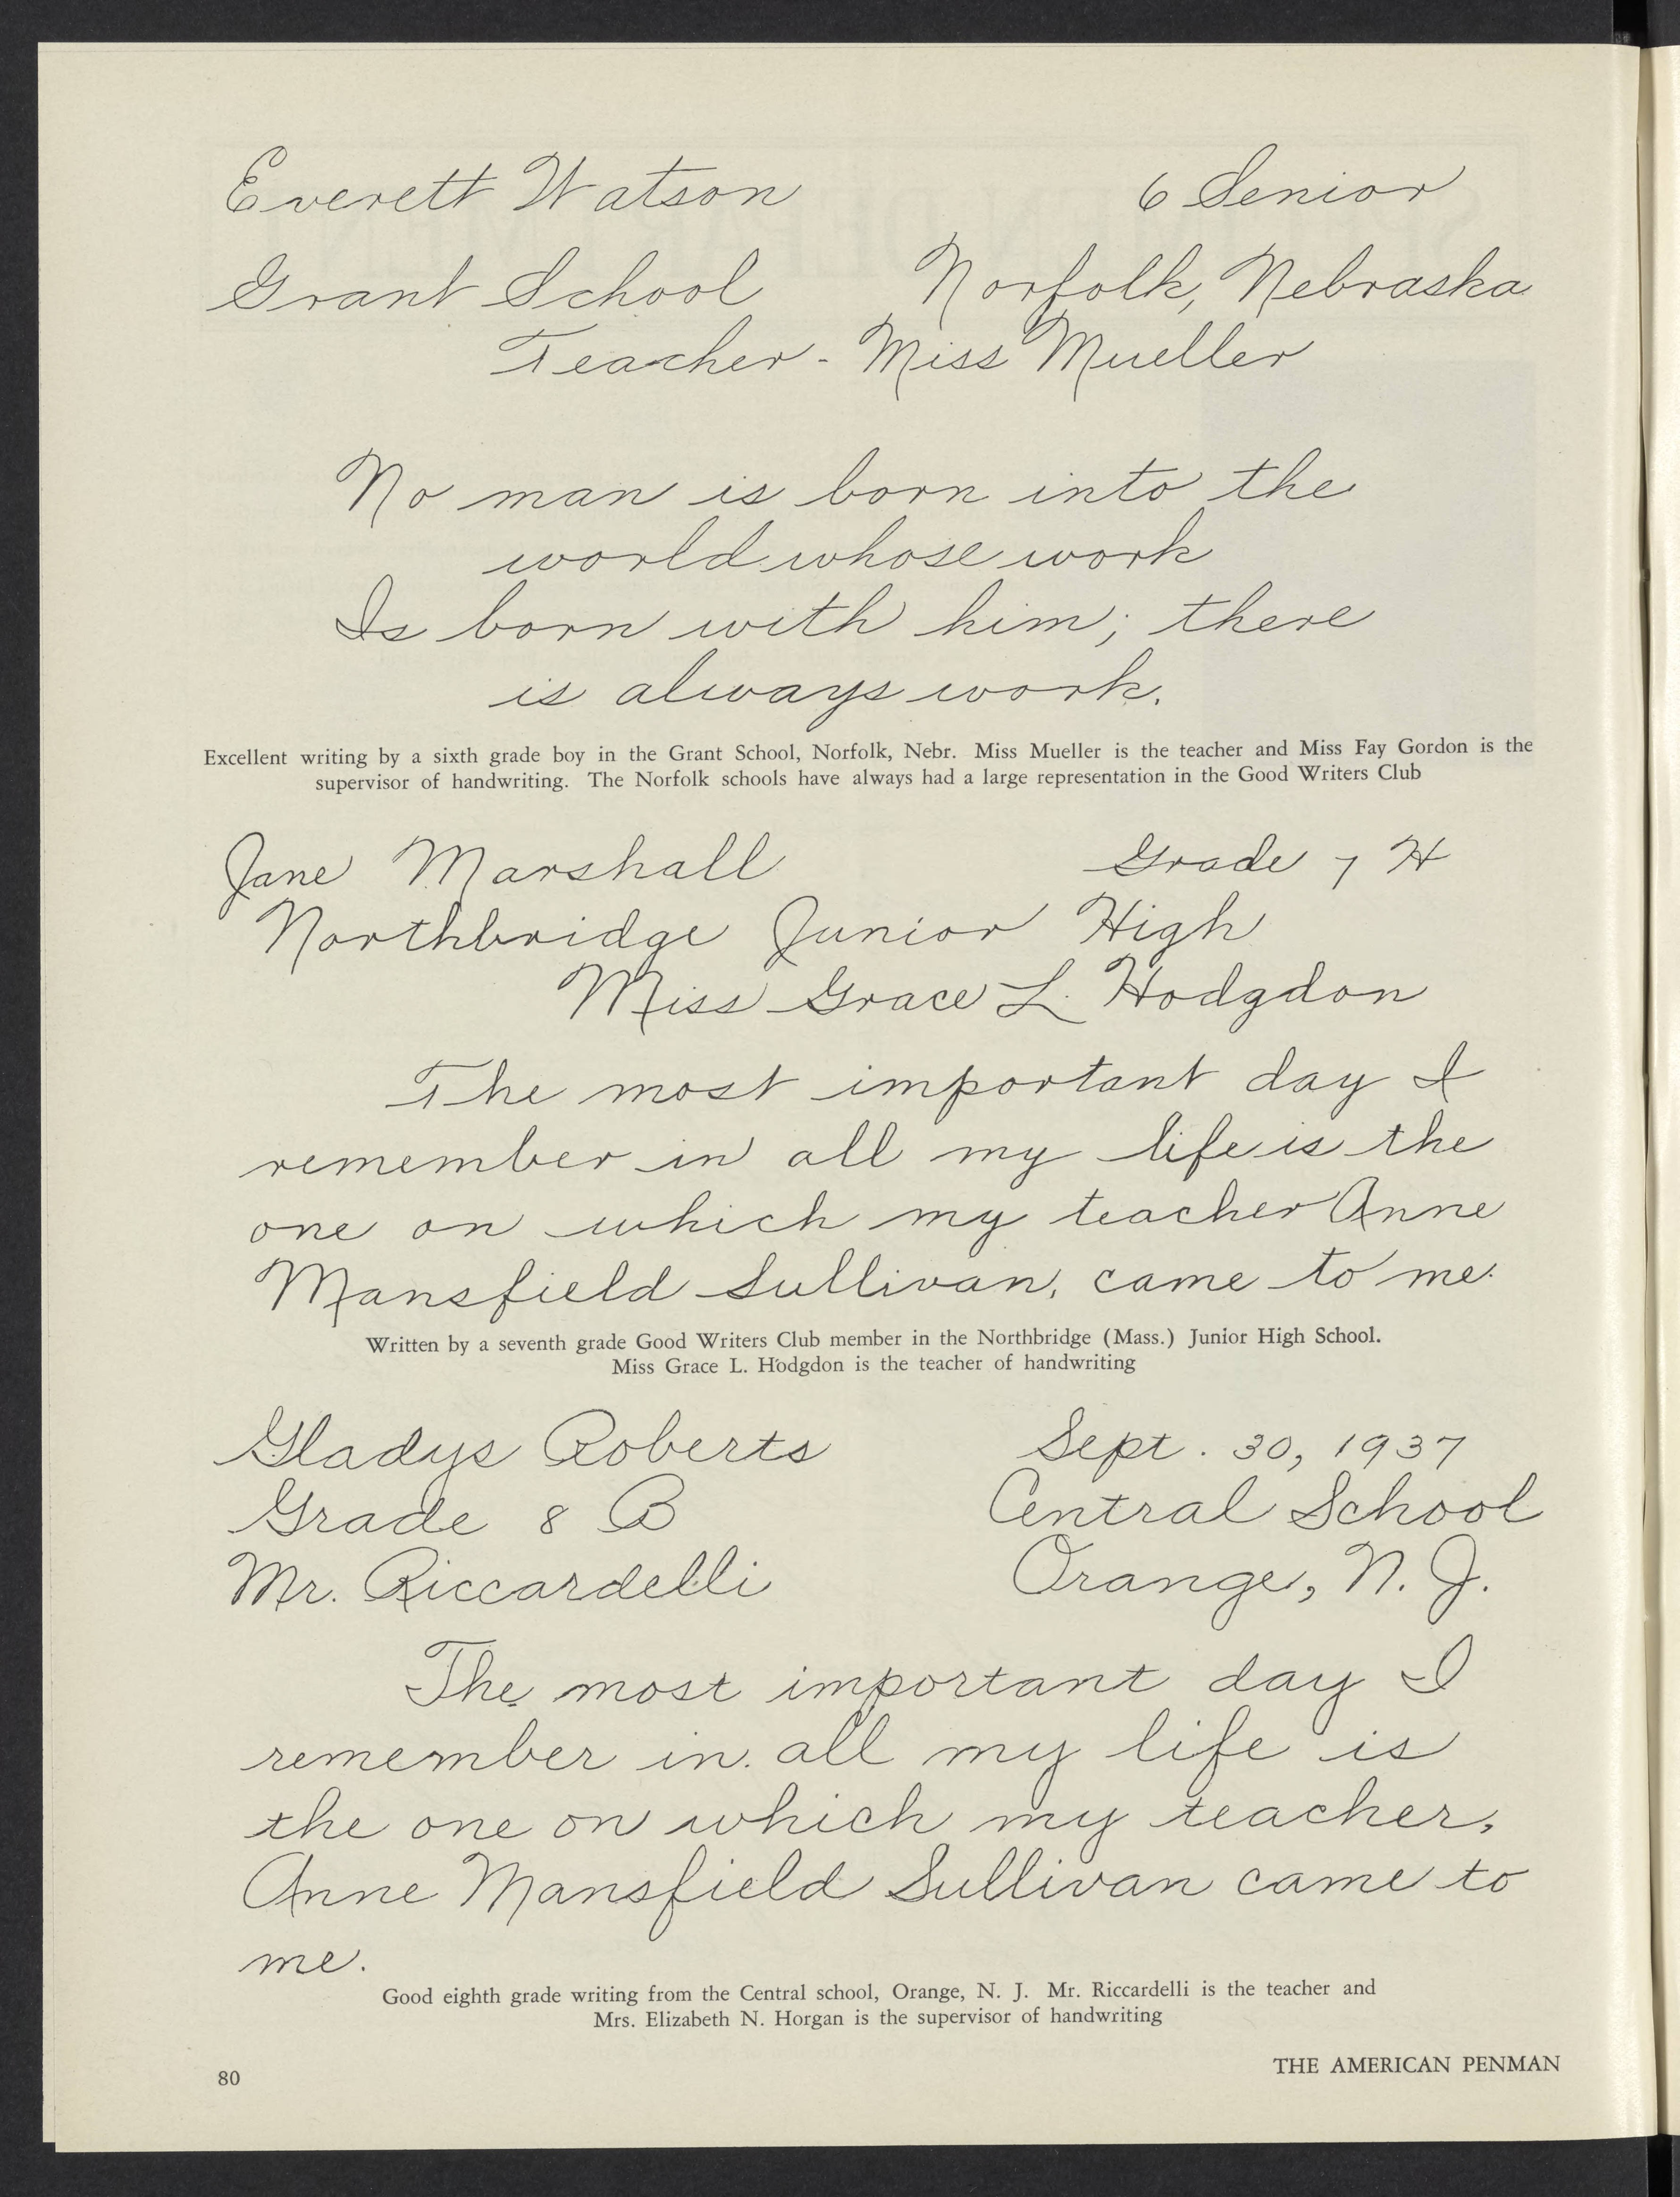 Everett Watson 6 Senior
Grant School Norfolk, Nebraska
Teacher - Miss Mueller
No man is born into the
world whose work
Is born with him; there
is always work.
Excellent writing by a sixth grade boy in the Grant School, Norfolk, Nebr. Miss Mueller is the teacher and Miss Fay Gordon is the
supervisor of handwriting. The Norfolk schools have always had a large representation in the Good Writers Club
Jane Marshall Grade 7 H
Northbridge Junior High
Miss Grace L. Hodgdon
The most important day I
remember in all my life is the
one on which my teacher Anne
Mansfield Sullivan, came to me.
Written by a seventh grade Good Writers Club member in the Northbridge (Mass.) Junior High School.
Miss Grace L. Hodgdon is the teacher of handwriting
Gladys Roberts Sept. 30, 1937
Grade 8 B Central School
Mr. Riccardelli Orange, N. J.
The most important day I
remember in all my life is
the one on which my teacher,
Anne Mansfield Sullivan came to
me.
Good eighth grade writing from the Central school, Orange, N. J. Mr. Riccardelli is the teacher and
Mrs. Elizabeth N. Horgan is the supervisor of handwriting
80 THE AMERICAN PENMAN